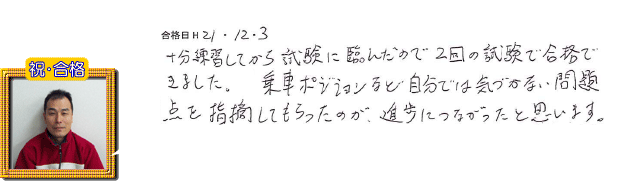 合格日 H 21・12・3
十分練習してから試験に臨んだので2回の試験で合格で
きました。 乗車ポジションなど自分では気づかない問題
点を指摘してもらったのが、進歩につながったと思います。
祝・合格